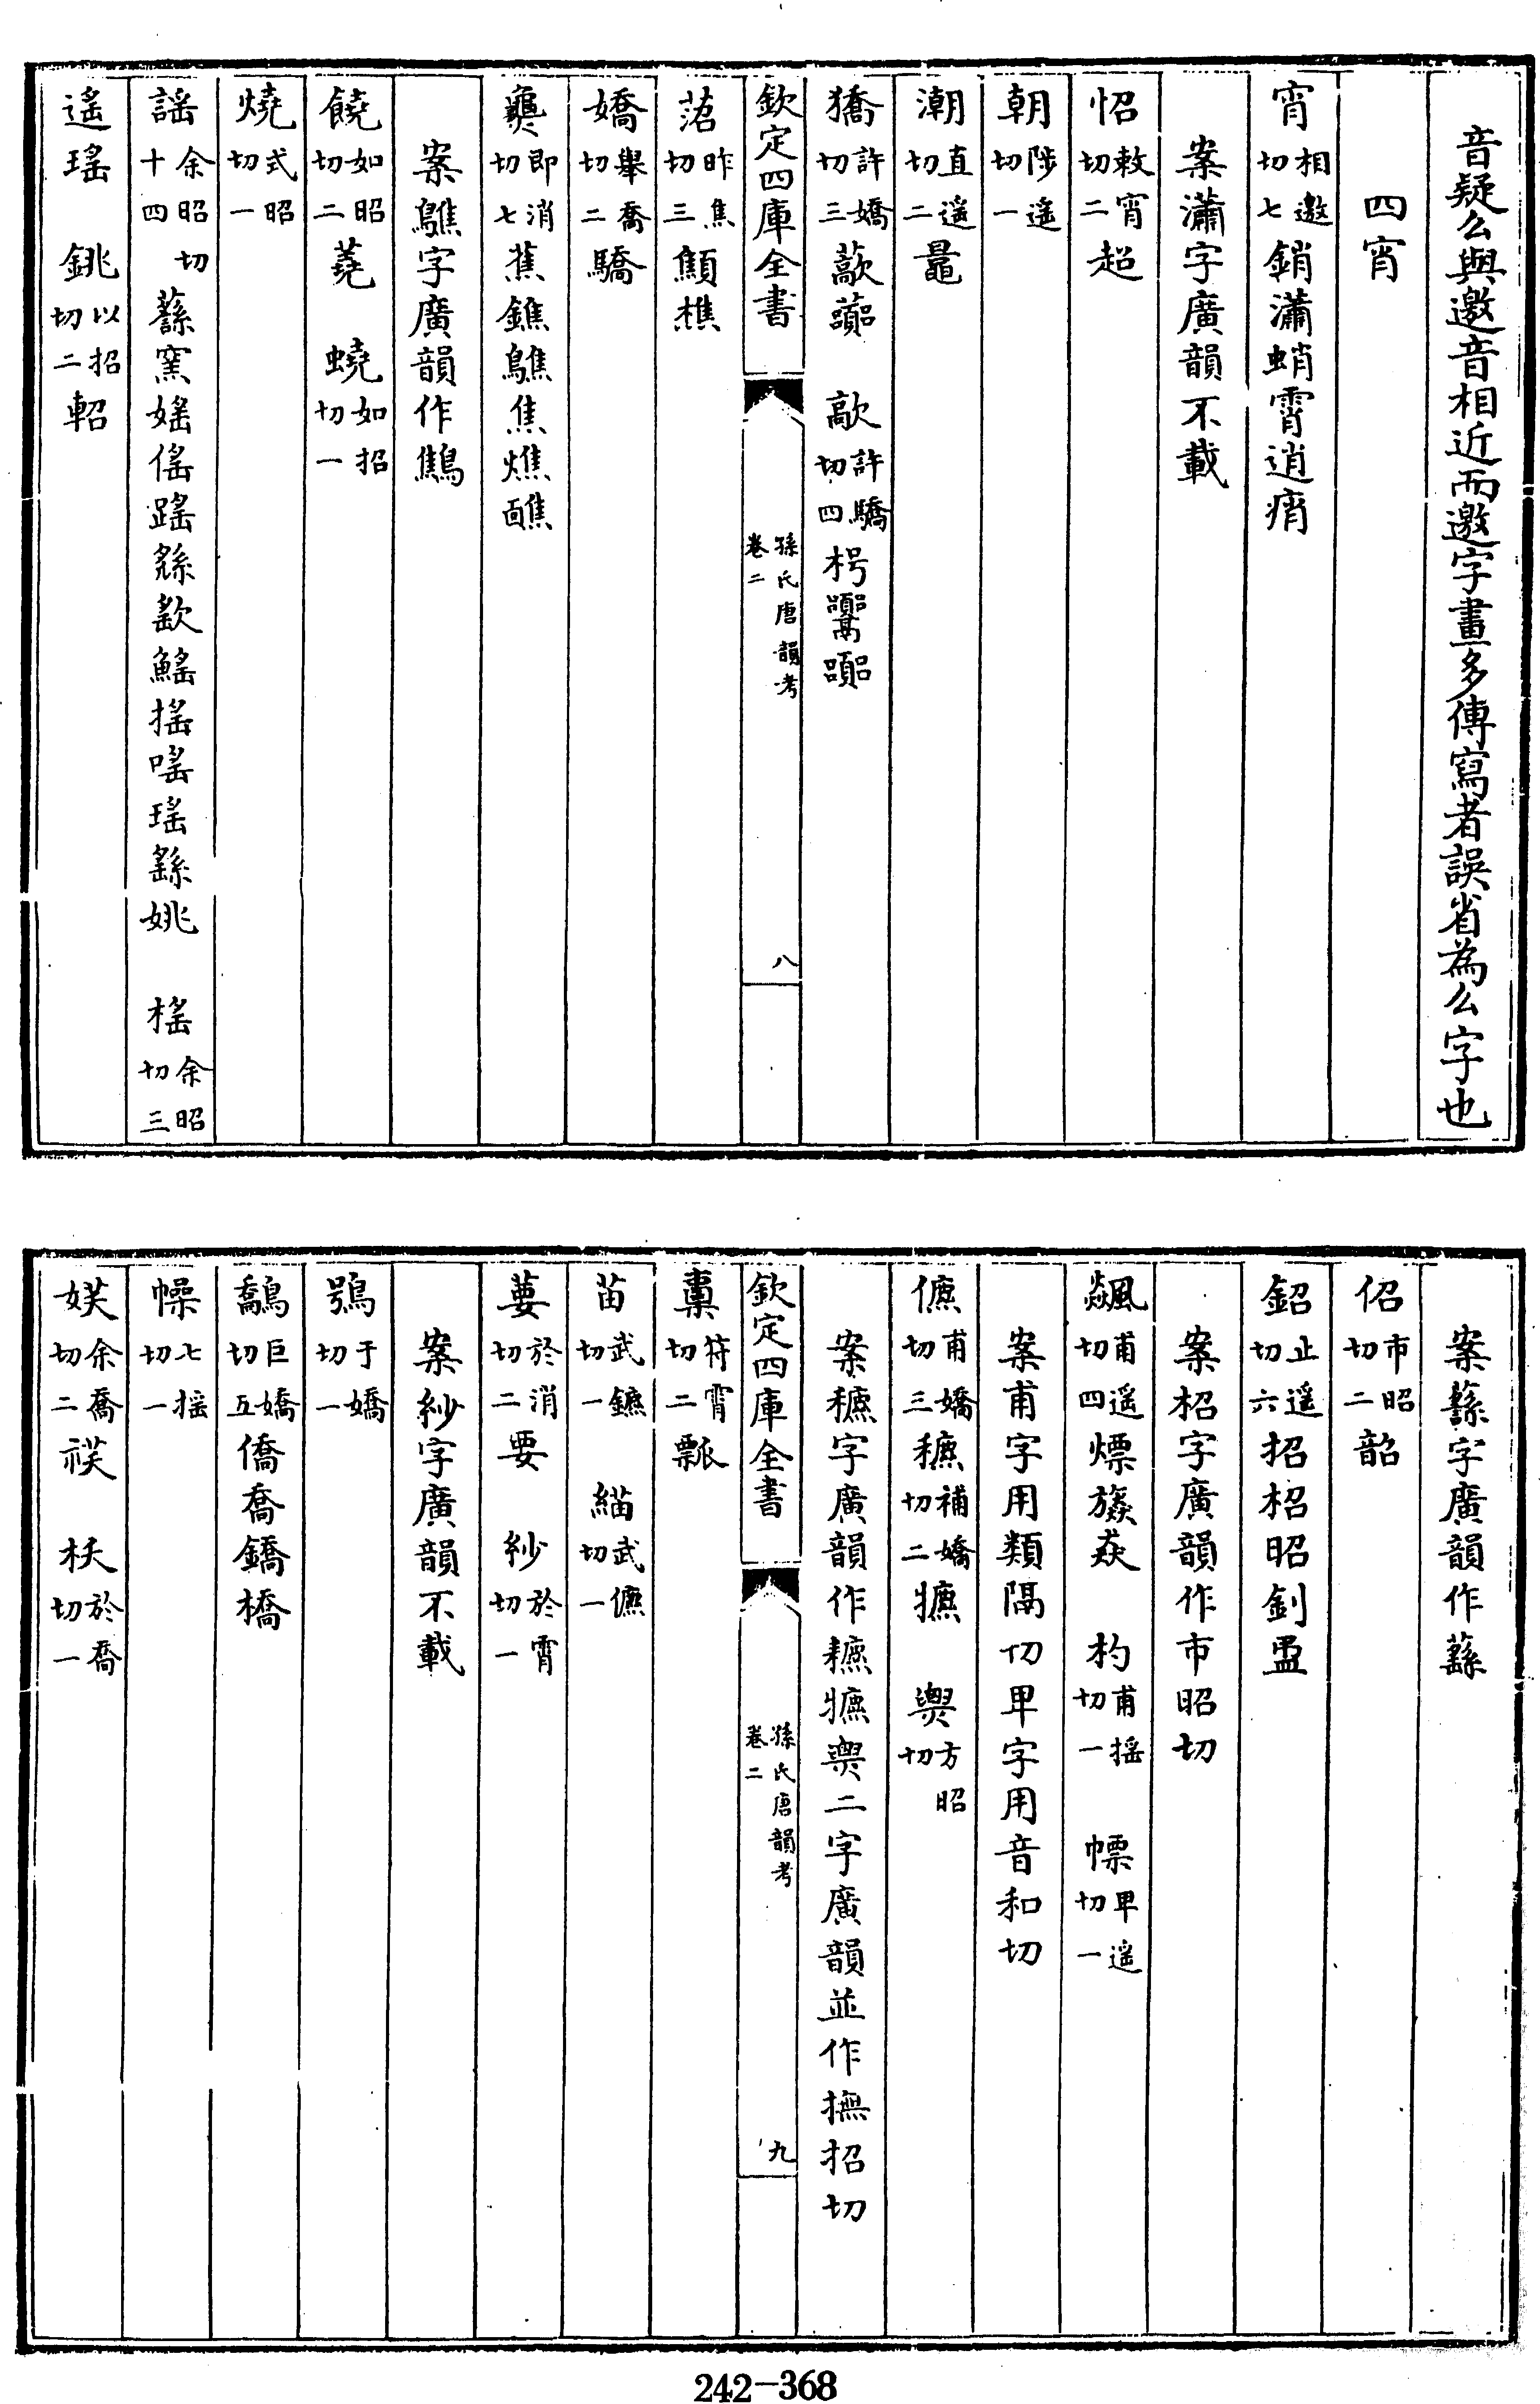 音疑么與邀音相近而邀字畫多傳寫者誤省為么字也
四宵
宵相邀切七銷潚蛸霄逍痟
案潚字廣韻不載
怊敕宵切二超
朝陟遥切一
潮直遥切二鼂
獢許嬌切三歊藃 歊許驕切四枵囂
欽定四庫全書 孫氏唐韻考 卷二 八
菬昨焦切三顦樵
嬌舉喬切二驕
即消切七蕉鐎鷦焦燋醮
案鷦字廣韻作鷦
饒如昭切二蕘 蟯如招切一
燒式昭切一
謠余昭切十四蘨窯媱傜蹈繇歊鰩揺嗂瑤繇姚 榣余昭切三
遙瑤 銚以招切二軺
案蘨字廣韻作蘨
佋市昭切二韶
鉊止遥切六招柖昭釗盄
案柖字廣韻作市昭切
飆甫遥切四熛旚猋 杓甫揺切一 幖卑遥切一
案甫字用類隔切卑字用音和切
儦甫嬌切三穮補嬌切二犥 㶾方昭切
案穮字廣韻作穮犥㶾二字廣韻並作撫招切
欽定四庫全書 孫氏唐韻考 卷二 九
橐符霄切二瓢
苗武鑣切一 緢武儦切一
葽於消切二要 紗於霄切一
案紗字廣韻不載
鴞于嬌切一
鷮巨嬌切五僑喬鐈橋
幧七揺切一
媄余喬切二祅 枖於喬切一
242-368